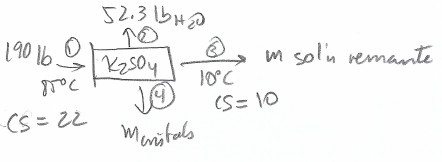 52.3 lb H₂O
② 
190 lb ① K₂SO₄ ③ m sol'n remanente
10°C
④ CS = 10
CS = 22
m cristals